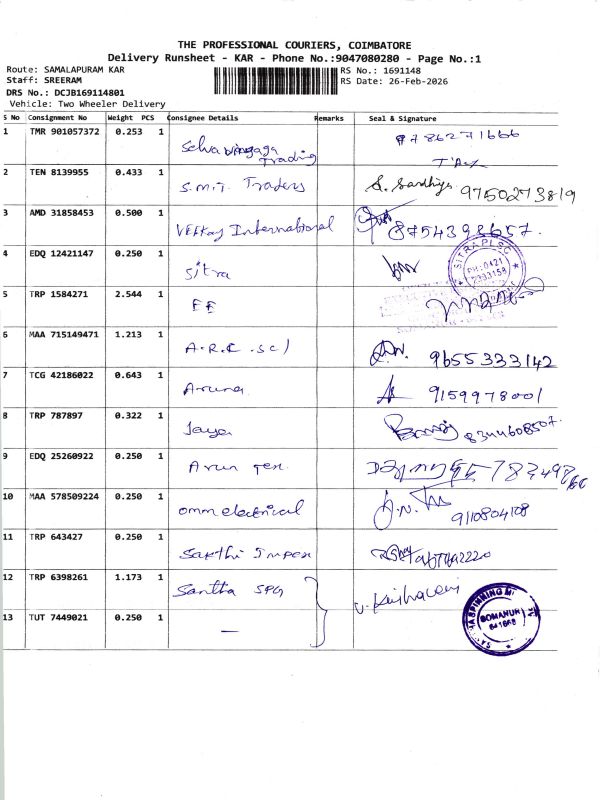 THE PROFESSIONAL COURIERS, COIMBATORE
Delivery Runsheet - KAR - Phone No.:9047080280 - Page No.:1
Route: SAMALAPURAM KAR
RS No.: 1691148
Staff: SREERAM
RS Date: 26-Feb-2026
DRS No.: DCJB169114801
Vehicle: Two Wheeler Delivery
S No Consignment No Weight PCS Consignee Details Remarks Seal & Signature
1 TMR 901057372 0.253 1 Trading
2 TEN 8139955 0.433 1 S.M.T. Traders S. Sandhiya 9750273819
3 AMD 31858453 0.500 1 International 8754398657.
4 EDQ 12421147 0.250 1 Sitra SITRA PLSC PH: 0421
5 TRP 1584271 2.544 1 EE
6 MAA 715149471 1.213 1 A.R.C .Sc) 9655333142
7 TCG 42186022 0.643 1 Aruna 9159978001
8 TRP 787897 0.322 1 Jaya 8344608507.
9 EDQ 25260922 0.250 1 Arun Tex.
10 MAA 578509224 0.250 1 omm electrical 9110804108
11 TRP 643427 0.250 1 Sakthi Impex
12 TRP 6398261 1.173 1 Santha SPG
13 TUT 7449021 0.250 1 —
SPINNING MI
SOMANUR
641668